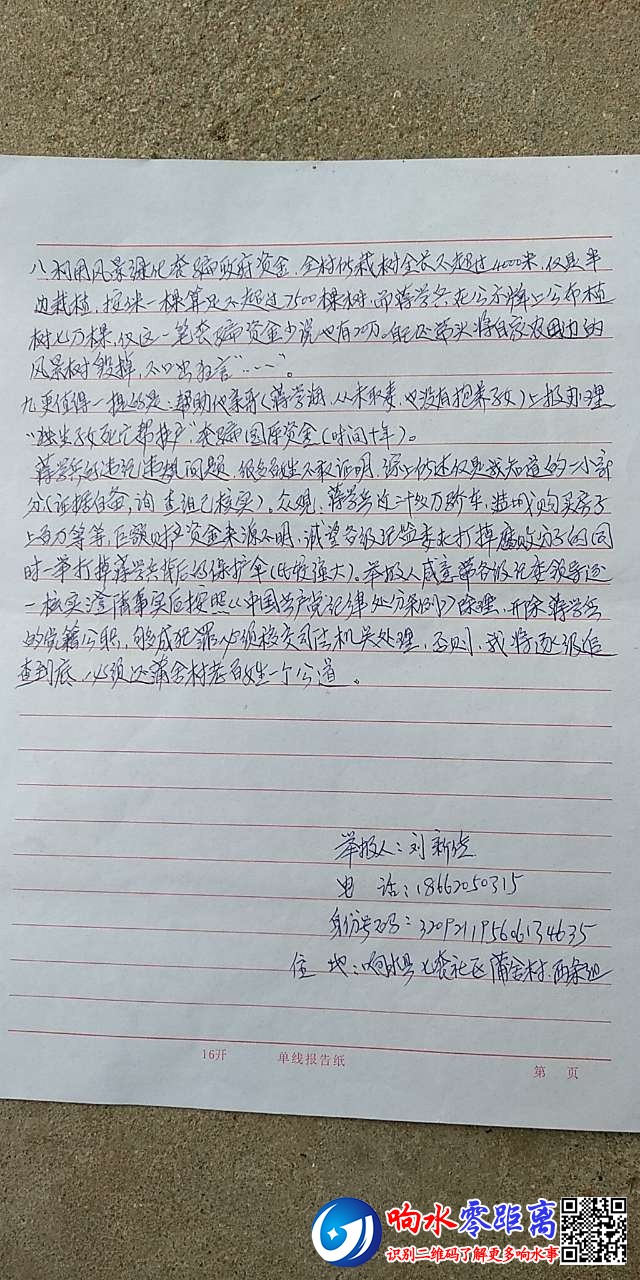 八.利用风景绿化套骗政府资金,全村所栽树全长不超过4000米,仅是单
边栽植,按米一棵算是不超过7500棵树,而蒋学兵在公示牌上公布植
树七万棵,仅这一笔套骗资金少说也有20万。能还带头将自家农田边的
风景树毁掉,不口出狂言“……”。
九.更值得一提的是,帮助他亲哥(蒋学湖,从未取妻,也没有抱养子女)上报办理
“独生子女死亡帮扶户”套骗国库资金(时间十年)。
蒋学兵的违记违规问题,很多百姓不敢证明,综上所述仅是我知道的一小部
分(证据自备,调查组已核实)。众观,蒋学兵近二十多万轿车,盐城购买房子
上百万等等,巨额财产资金来源不明,诚望各级记监委在打掉腐败分子的同
时一举打掉蒋学兵背后的保护伞(比较强大)。举报人感意带各级记委领导逐
一核实澄清事实后按照《中国共产党记律处分条例》除理,开除蒋学兵
的党籍公职,够成犯罪必须移交司法机关处理,否则,我将逐级追
查到底,必须还蒲舍村老百姓一个公道。
举报人:刘新
电 话:18662050315
身份号码:320921195606134635
住 地:响水县七套社区蒲舍村西条组
16开 单线报告纸
第 页
响水零距离
识别二维码了解更多响水事